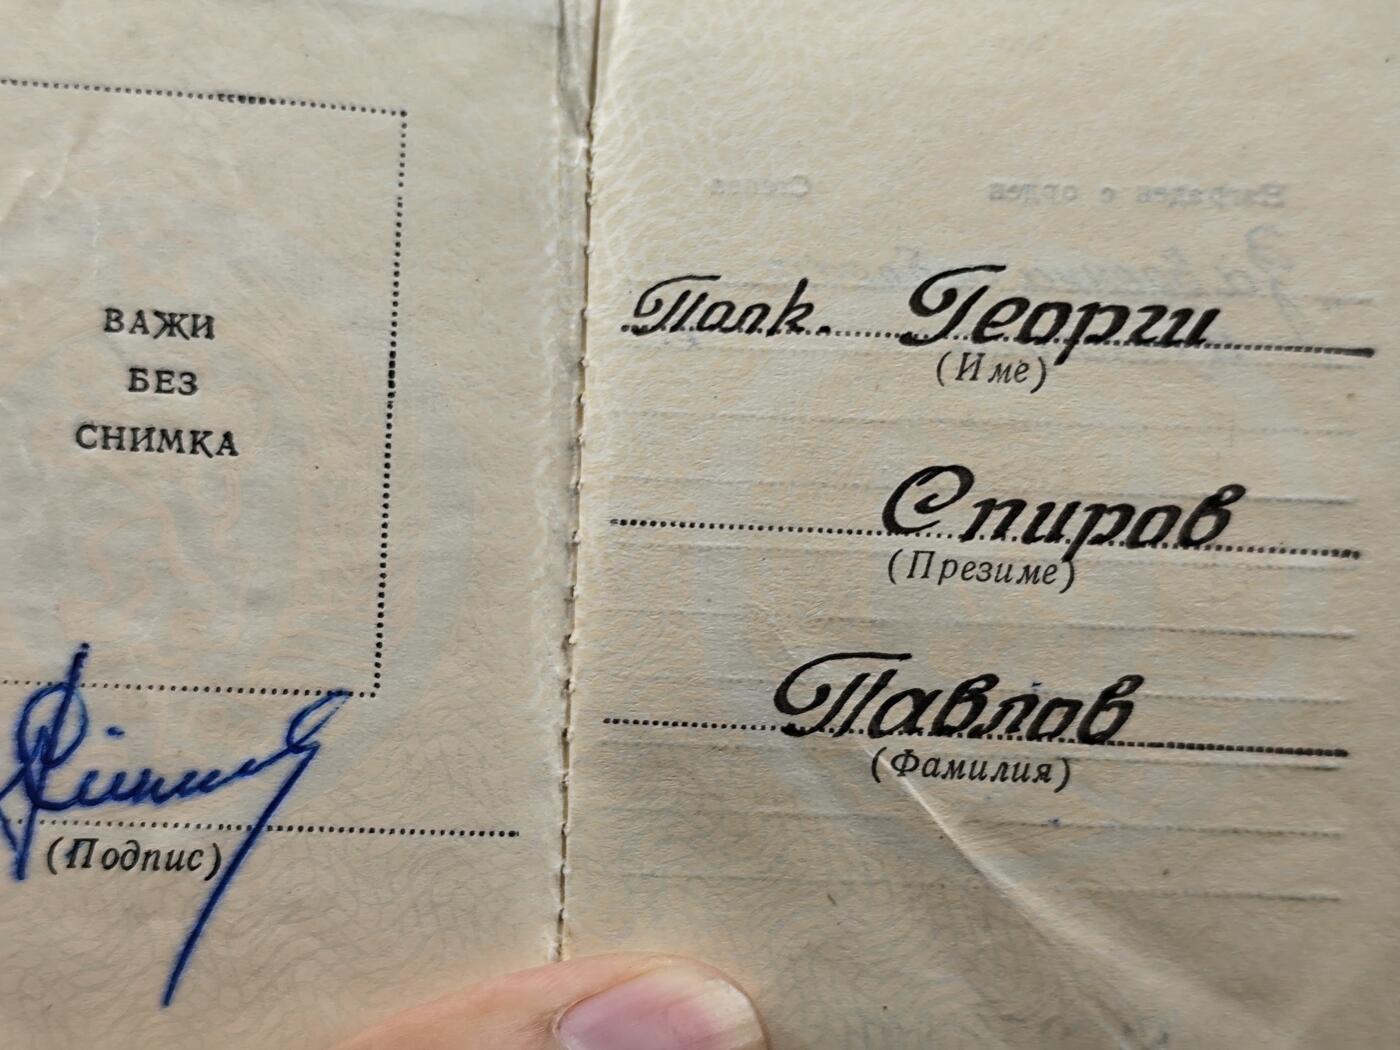 ВАЖИ
БЕЗ
СНИМКА
(Подпис)
Полк. Георги
(Име)
Спиров
(Презиме)
Павлов
(Фамилия)